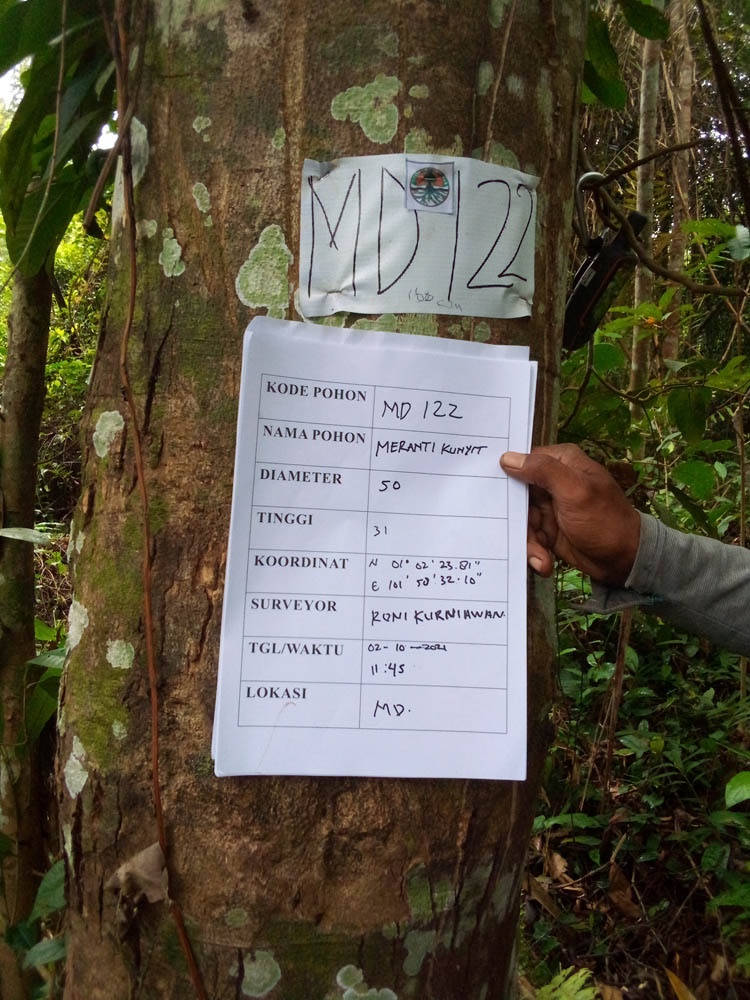 MD 122
KODE POHON MD 122
NAMA POHON MERANTI KUNYIT
DIAMETER 50
TINGGI 31
KOORDINAT N 01° 02' 23.81"
E 101° 58' 32.10"
SURVEYOR RONI KURNIAWAN.
TGL/WAKTU 02-10-2021
11:45
LOKASI MD.